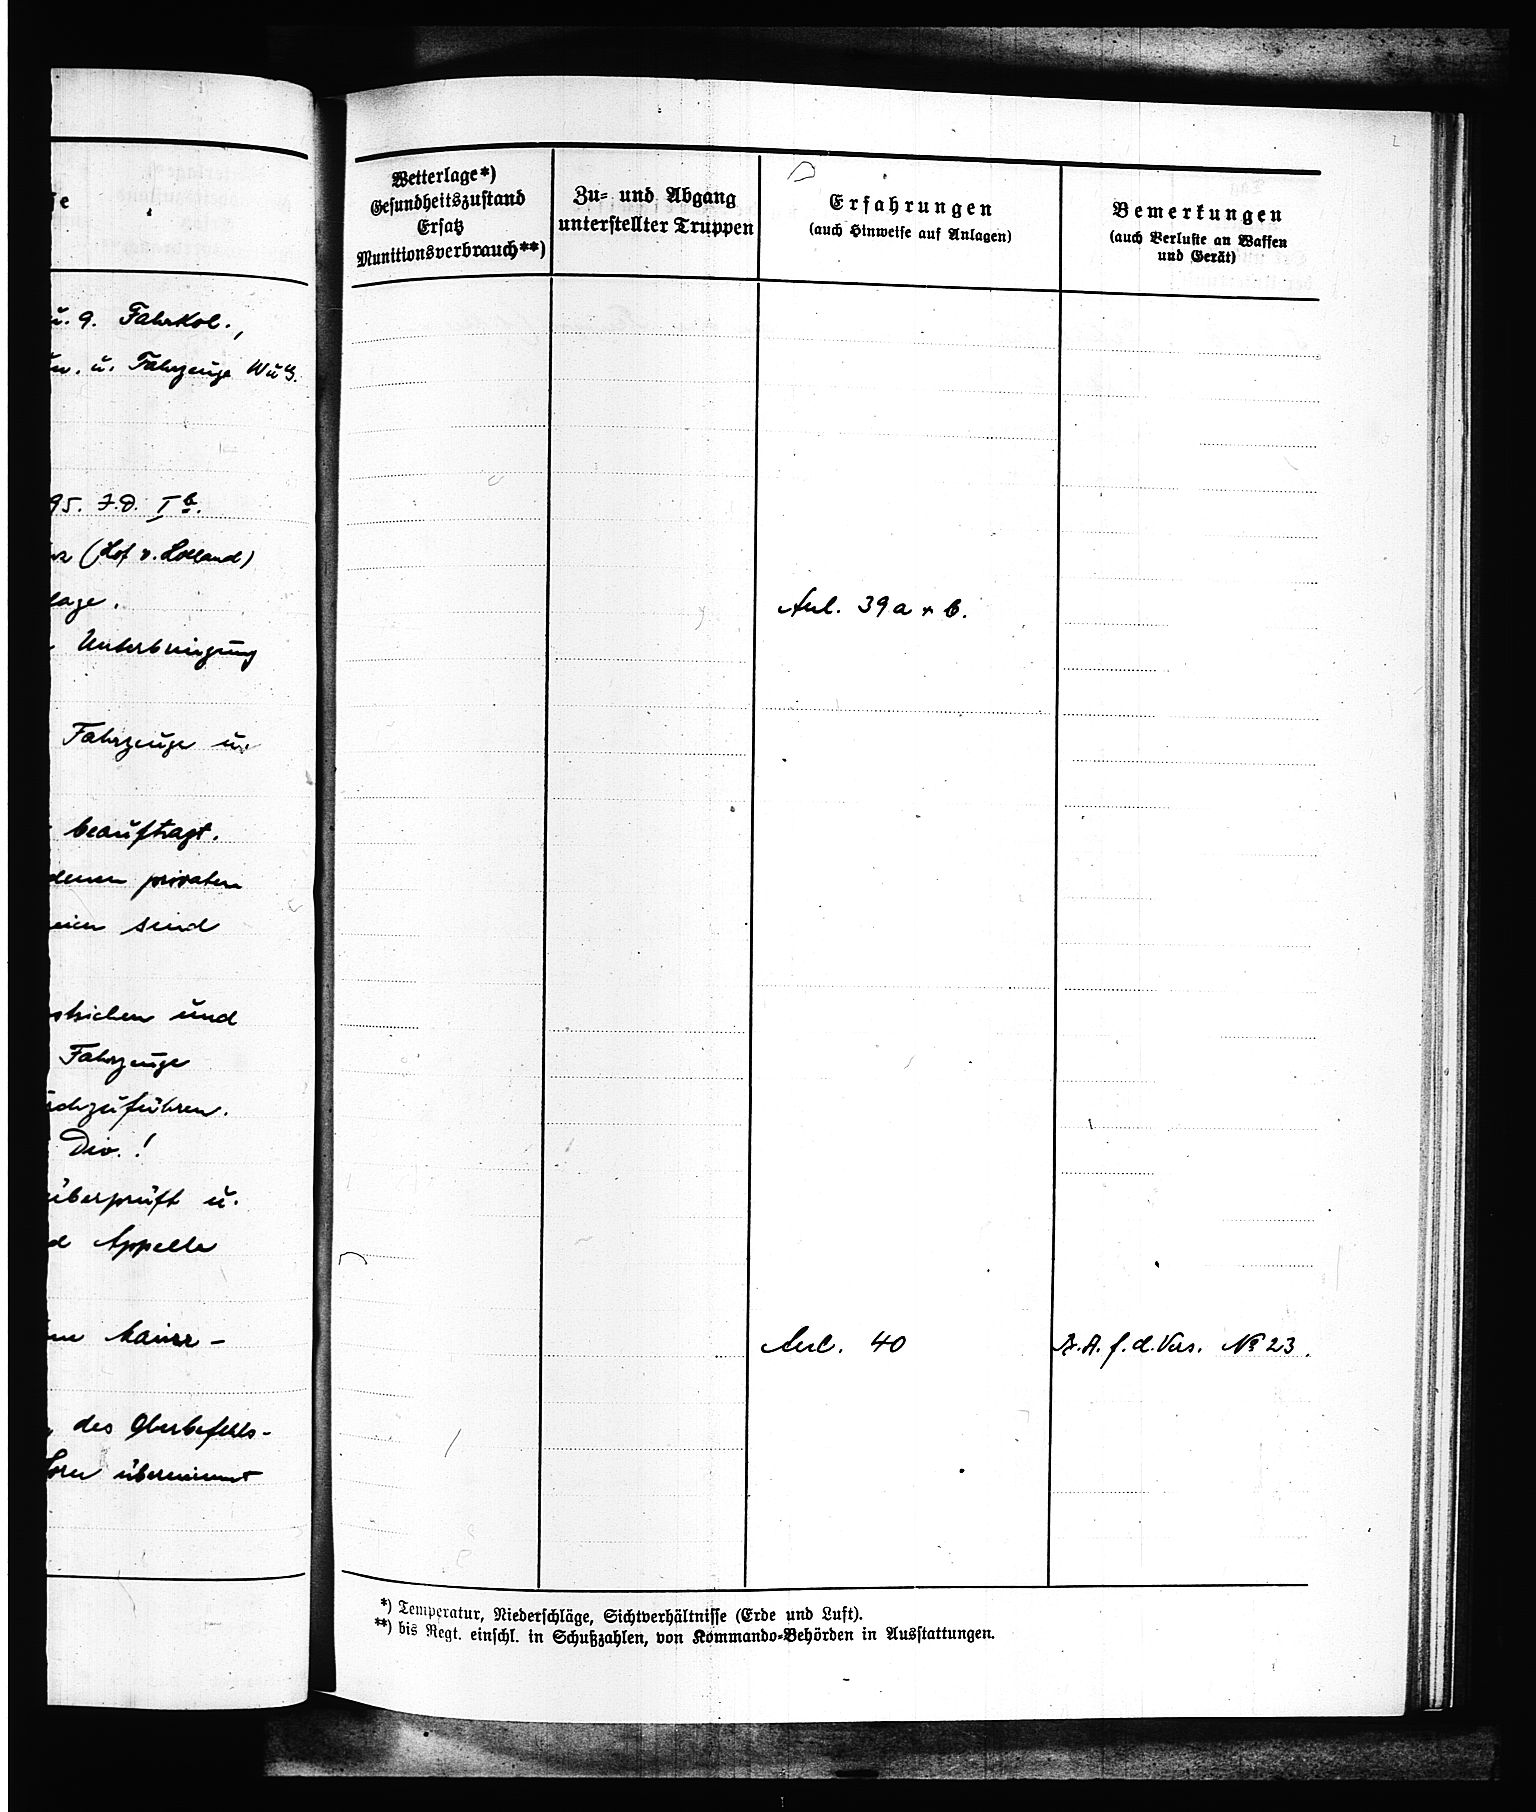 u. 9. Fahrkol.,
u. Fahrzeuge
95. J.D. Ib.
(Hof v. Holland)
lage.
Unterbringung
Fahrzeuge u.
beauftragt.
denen privaten
sind
und
Fahrzeuge
chzuführen.
Div.!
überprüft u.
d Appelle
des Oberbefehls-
übernimmt
Wetterlage*)
Gesundheitszustand
Ersatz
Munitionsverbrauch**)
Zu- und Abgang
unterstellter Truppen
Erfahrungen
(auch Hinweise auf Anlagen)
Bemerkungen
(auch Verluste an Waffen
und Gerät)
Anl. 39a + b.
Anl. 40
B.A.f.d.Vers. № 23.
*) Temperatur, Niederschläge, Sichtverhältnisse (Erde und Luft).
**) bis Regt. einschl. in Schußzahlen, von Kommando-Behörden in Ausstattungen.